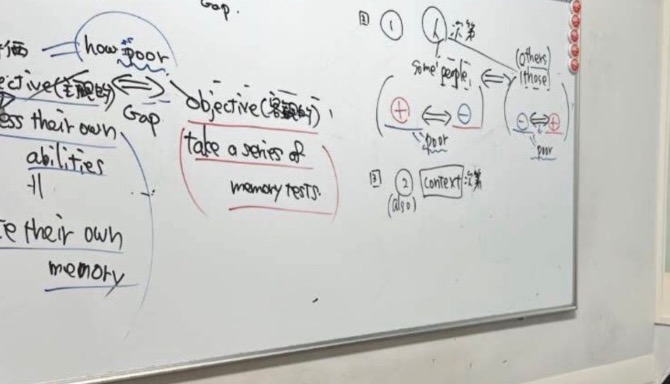 Gap.
価 = how poor
ective(主観的) ⇔ objective(客観的)
Gap
ess their own
abilities
take a series of
memory tests.
te their own
memory
② ① 人次第
some people ⇔ (others)
those
⊕ ⇔ ⊖
poor
⊖ ⇔ ⊕
poor
③ ② context 次第
(also)